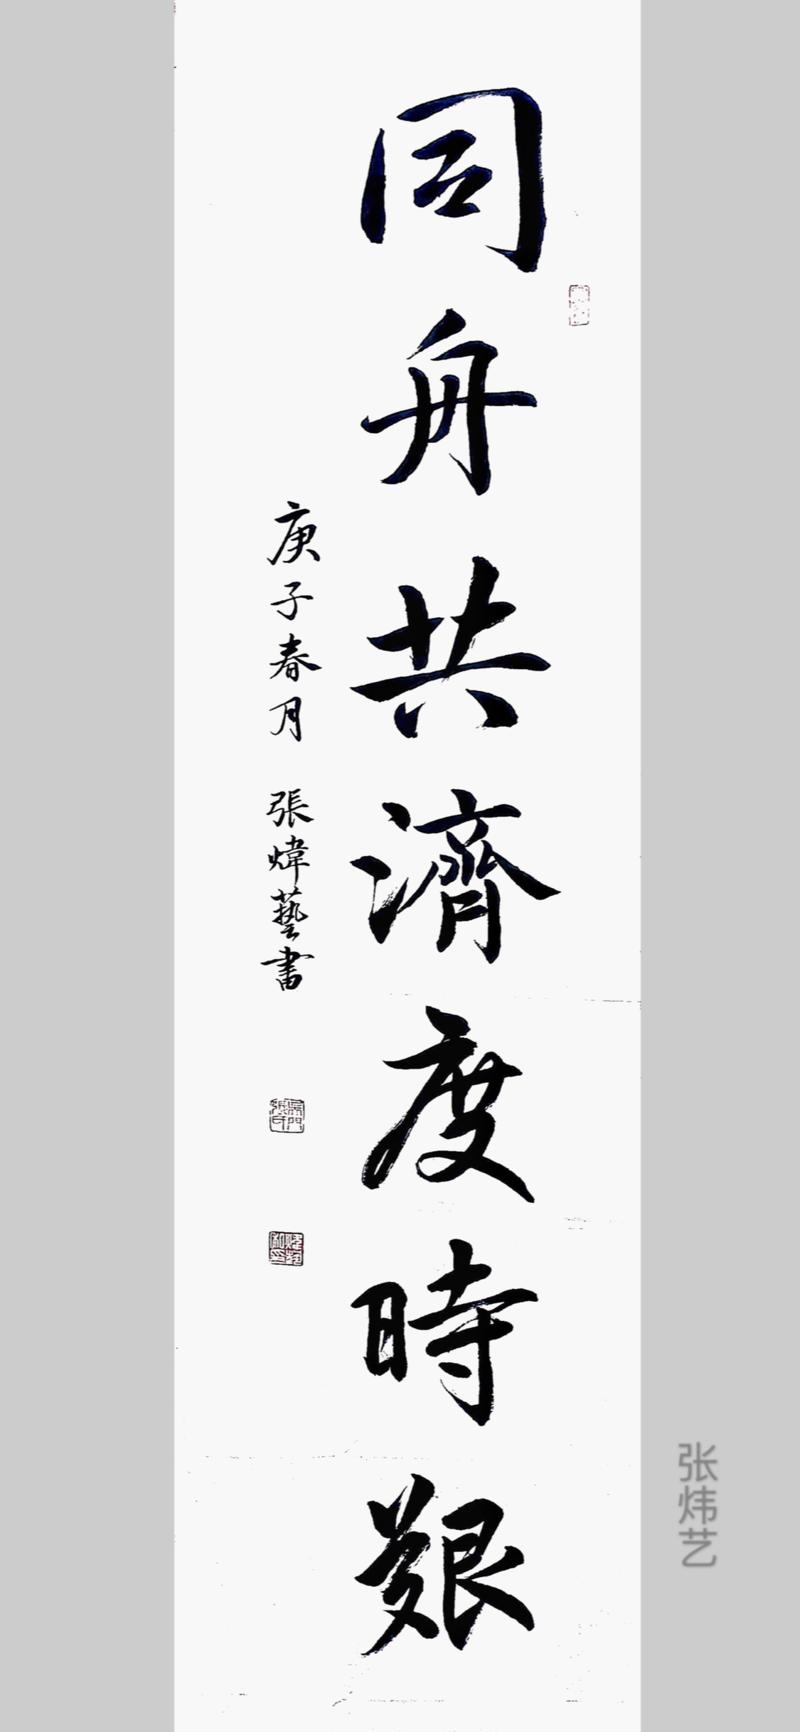 同舟共濟度時艱
庚子春月 張煒藝書
张炜艺